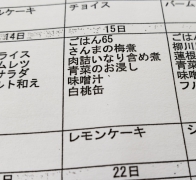 ルケーキ
チョイス
バーム
14日
15日
ライス
ムレツ
サラダ
ルト和え
ごはん65
さんまの梅煮
肉詰いなり含め煮
青菜のお浸し
味噌汁
白桃缶
ごは
柳川
蓮根
青菜
味噌
フル
レモンケーキ
22日